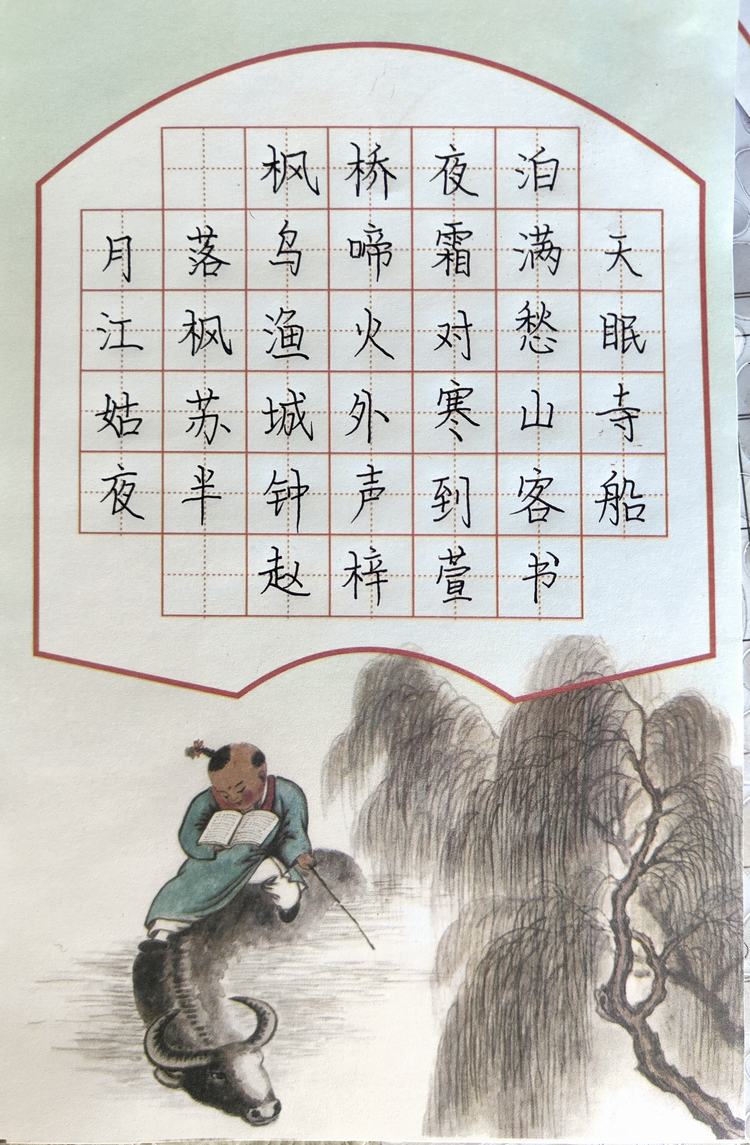 枫桥夜泊
月落乌啼霜满天
江枫渔火对愁眠
姑苏城外寒山寺
夜半钟声到客船
赵梓萱书